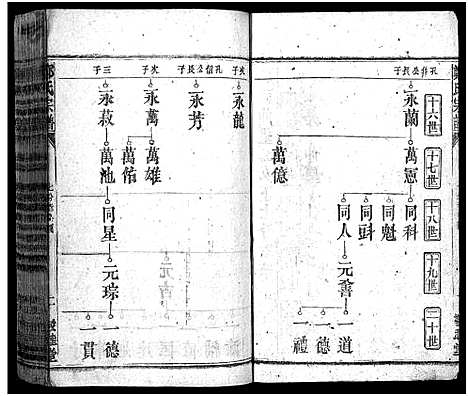 十六世
十七世
十八世
十九世
二十世
孔仕公長子
永蘭
萬憲
萬億
同科
同魁
同斗
同人
元善
一道
一德
一禮
次子
永龍
孔信公長子
永芳
次子
永萬
萬雄
萬佑
三子
永叔
萬池
同星
元琮
一德
一貫
氏宗譜